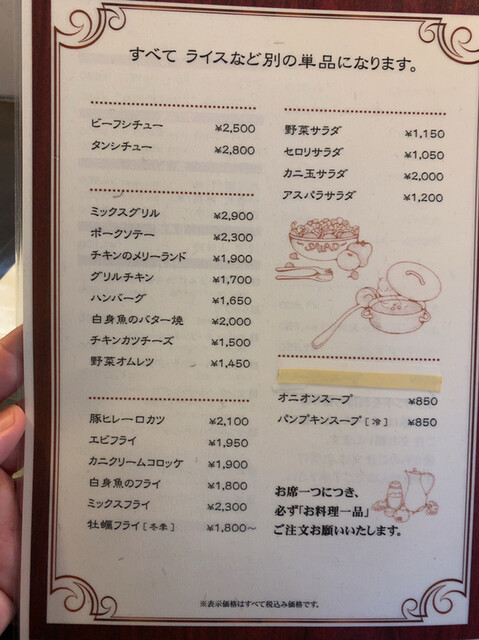 すべて ライスなど別の単品になります。
ビーフシチュー ¥2,500
タンシチュー ¥2,800
ミックスグリル ¥2,900
ポークソテー ¥2,300
チキンのメリーランド ¥1,900
グリルチキン ¥1,700
ハンバーグ ¥1,650
白身魚のバター焼 ¥2,000
チキンカツチーズ ¥1,500
野菜オムレツ ¥1,450
豚ヒレ一ロカツ ¥2,100
エビフライ ¥1,950
カニクリームコロッケ ¥1,900
白身魚のフライ ¥1,800
ミックスフライ ¥2,300
牡蠣フライ[冬季] ¥1,800～
野菜サラダ ¥1,150
セロリサラダ ¥1,050
カニ玉サラダ ¥2,000
アスパラサラダ ¥1,200
SALAD
オニオンスープ ¥850
パンプキンスープ[冷] ¥850
お席一つにつき、
必ず「お料理一品」
ご注文お願いいたします。
※表示価格はすべて税込み価格です。